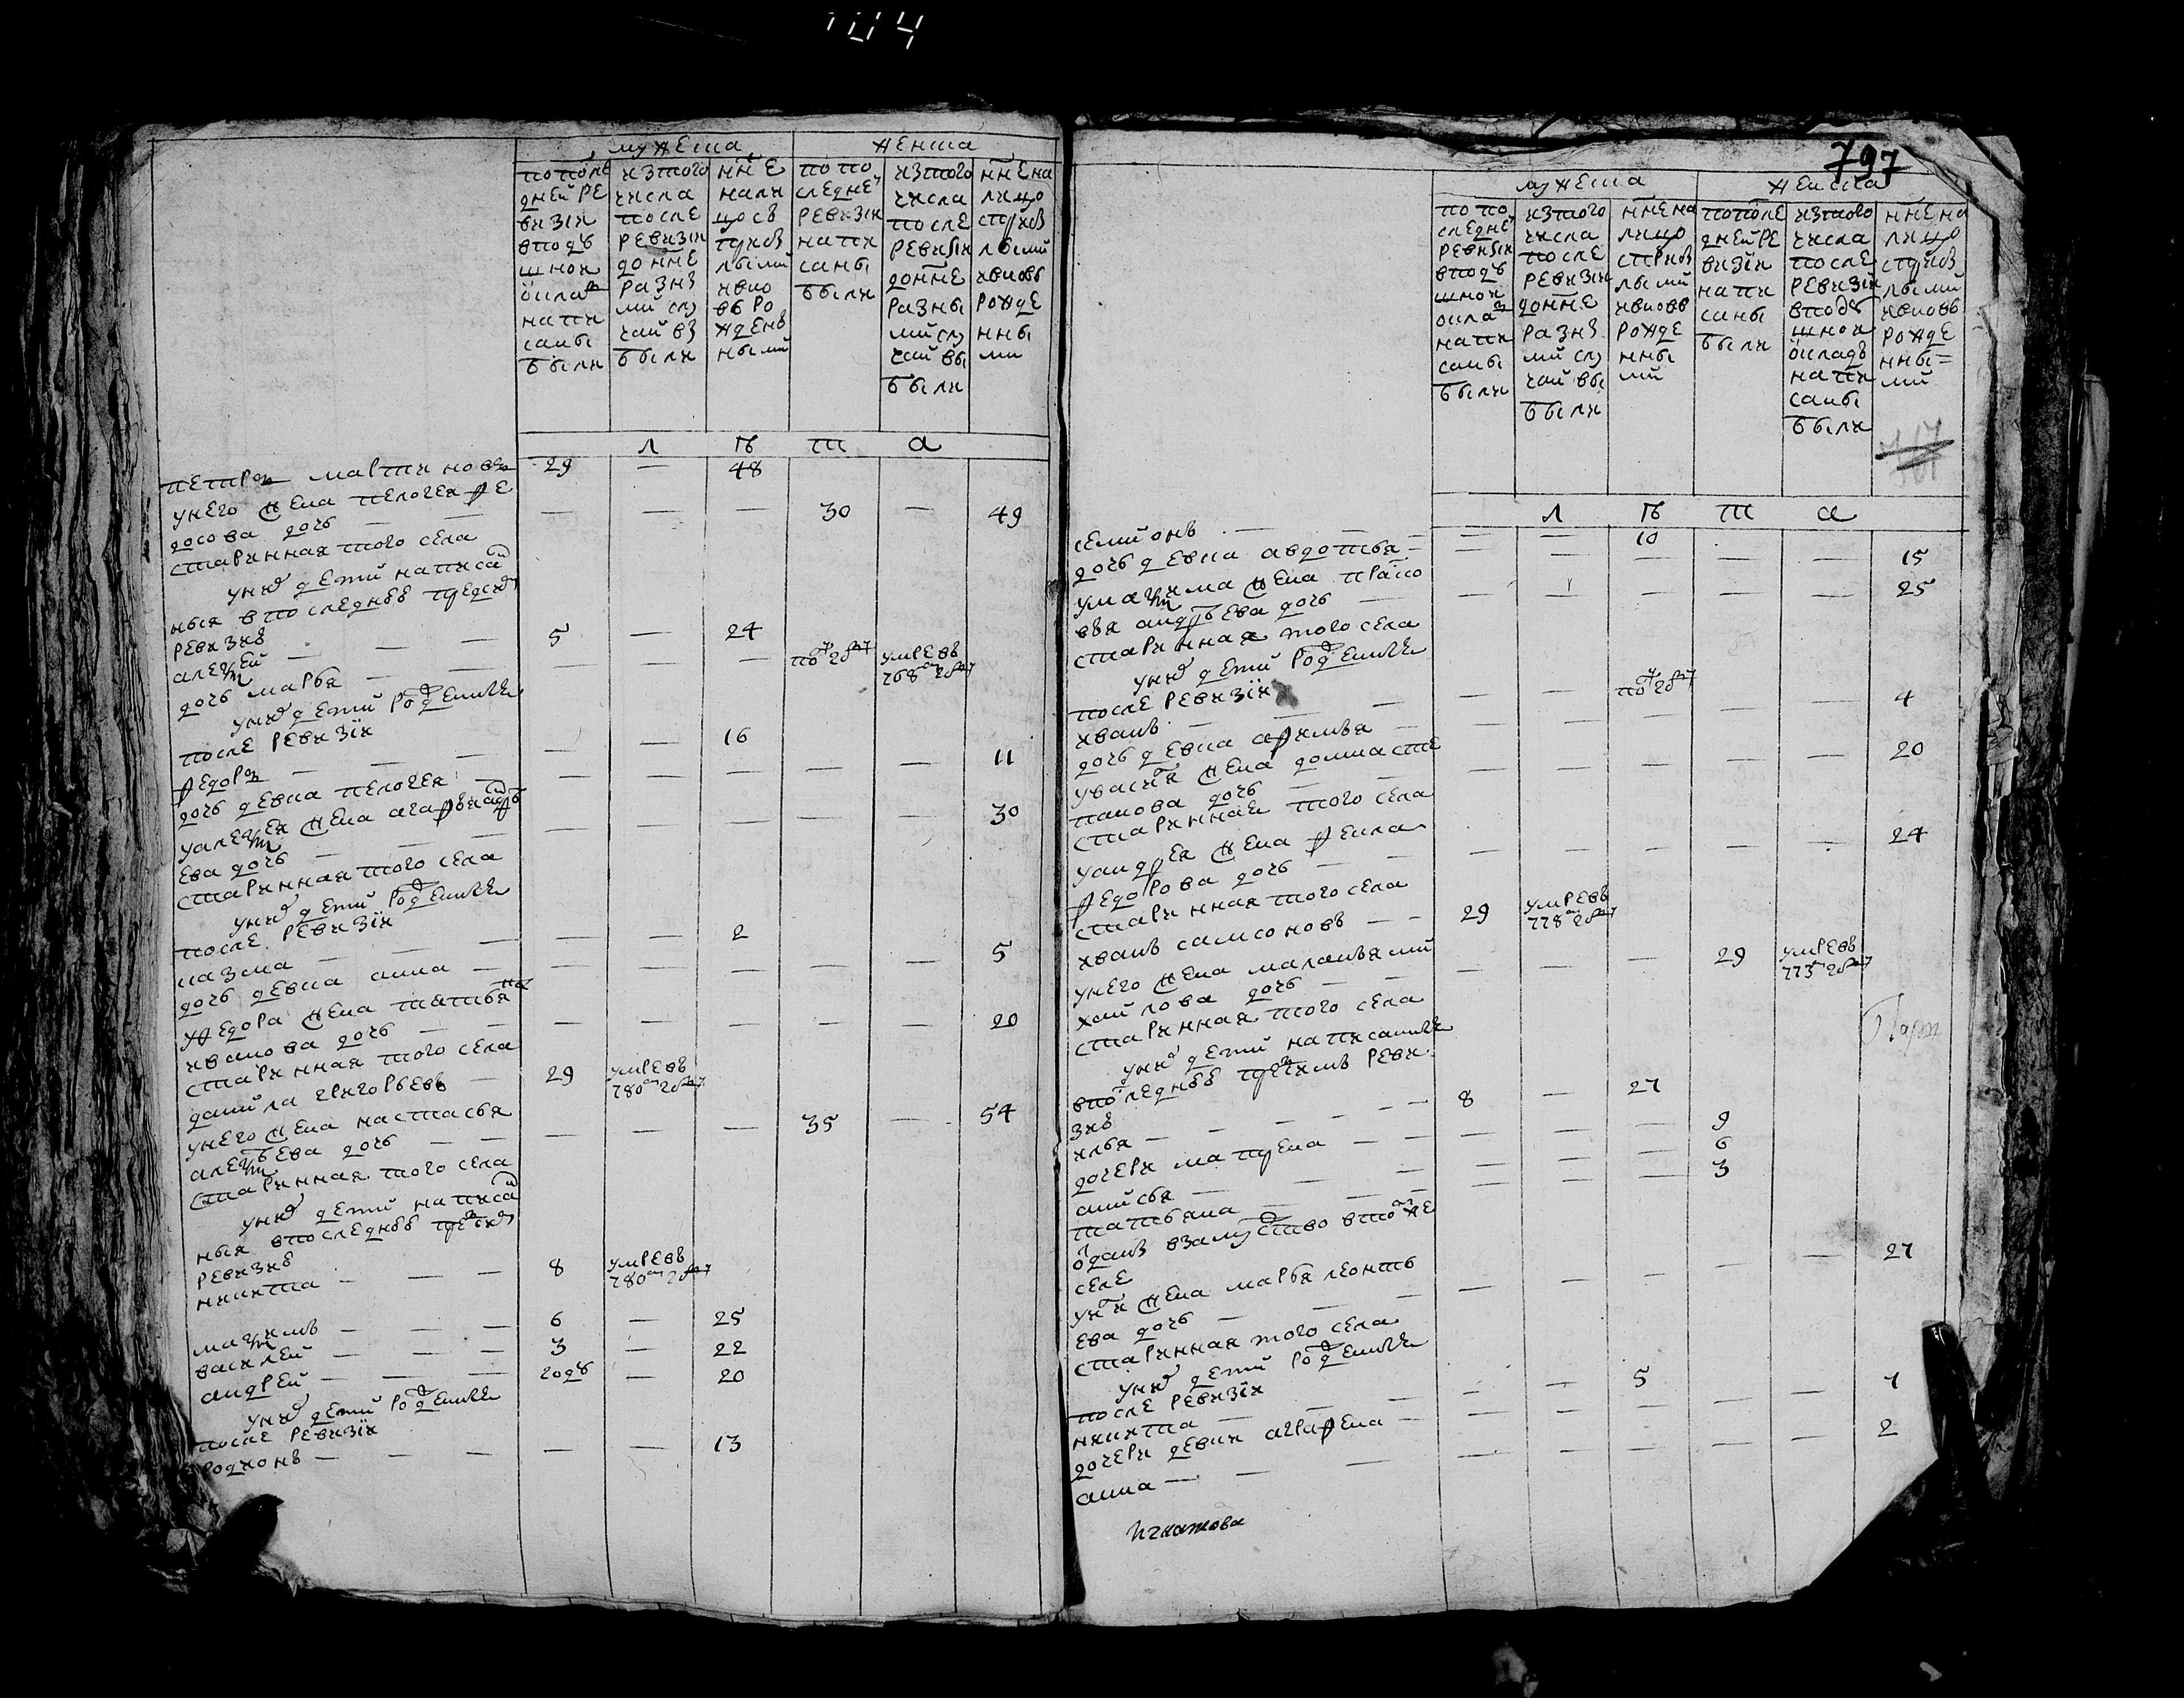 704
мужеска
женска
по после
дней ре
визіи
в подуш
шной
окладъ
напи
саны
были
изтого
числа
после
ревизіи
до ннѣ
разны
ми слу
чаи вы
были
ннѣ
нали
цо съ
прибы
лыми
и вно
вь ро
жден
ными
по по
следней
ревизіи
напи
саны
были
изтого
числа
после
ревизіи
до ннѣ
разны
ми слу
чаи вы
были
ннѣ на
лицо
с прибы
лыми
и вновь
рожде
нны
ми
л ѣ т а
петръ мартиновъ 29 — 48
у него жена пелагея фе
досова дочь — — — — — 30 — 49
старинная того села
у них дети написан
ныя в последней пред сим
ревизиѣ
алексей — — 5 — 24
дочь марья — — — — — пол году умре въ 768м году
у них дети рожденныя
после ревизіи
федоръ — — — — 16
дочь девка пелагея — — — — — 11
у алексея жена аграфена
ева дочь — — — — — — — 30
старинная того села
у них дети рожденныя
после ревизіи
казма — — — — 2
дочь девка анна — — — — — — 5
у федора жена татьяна
иванова дочь — — — — — — — 20
старинная того села
данила григорьевъ — 29 умре въ 780м году
у него жена настасья
алексѣева дочь — — — — — 35 — 54
старинная того села
у них дети написан
ныя в последней пред сим
ревизиѣ
никита — — — 8 умре въ 780м году
максимъ — — — 6 — 25
василей — — — 3 — 22
андрей — — — году — 20
у них дети рожденныя
после ревизіи
родионъ — — — — — 13
797
мужеска
женска
по по
следней
ревизіи
в подуш
шной
оклад
напи
саны
были
изтого
числа
после
ревизіи
до ннѣ
разны
ми слу
чаи вы
были
ннѣ на
лицо
с прибы
лыми
и вновь
рожде
нны
ми
по после
дней ре
визіи
напи
саны
были
изтого
числа
после
ревизіи
в подуш
шной
окладъ
напи
саны
были
ннѣ на
лицо
с прибы
лыми
и вновь
рожде
нны=
ми
л ѣ т а
семионъ — — — — — 10
дочь девка авдотья — — — — — — 15
у максима жена праско
вья андрѣева дочь — — — — — — 25
старинная того села
у них дети рожденныя
после ревизіи
иванъ — — — — — пол году
дочь девка афимья — — — — — — 4
у василья жена домна сте
панова дочь — — — — — — 20
старинная того села
у андрея жена фекла
федорова дочь — — — — — — — 24
старинная того села
иванъ самсоновъ — — 29 умре въ 778м году
у него жена маланья ми
хайлова дочь — — — — — 29 умре въ 773м году
старинная того села
у них дети написанныя
в последней пред симъ реви
зиѣ
илья — — — — — 8 — 27
дочери матрена — — — — — 9
анисья — — — — — 6
татьяна — — — — — 3
оданы в замужство в томже
селе
у ильи жена марья леонть
ева дочь — — — — — — — 27
старинная того села
у них дети рожденныя
после ревизіи
никита — — — — 5
дочери девки аграфена — — — — — — 7
анна — — — — — — — — 2
Игнатова